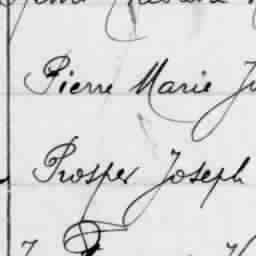 Pierre Marie Ju
Prosper Joseph